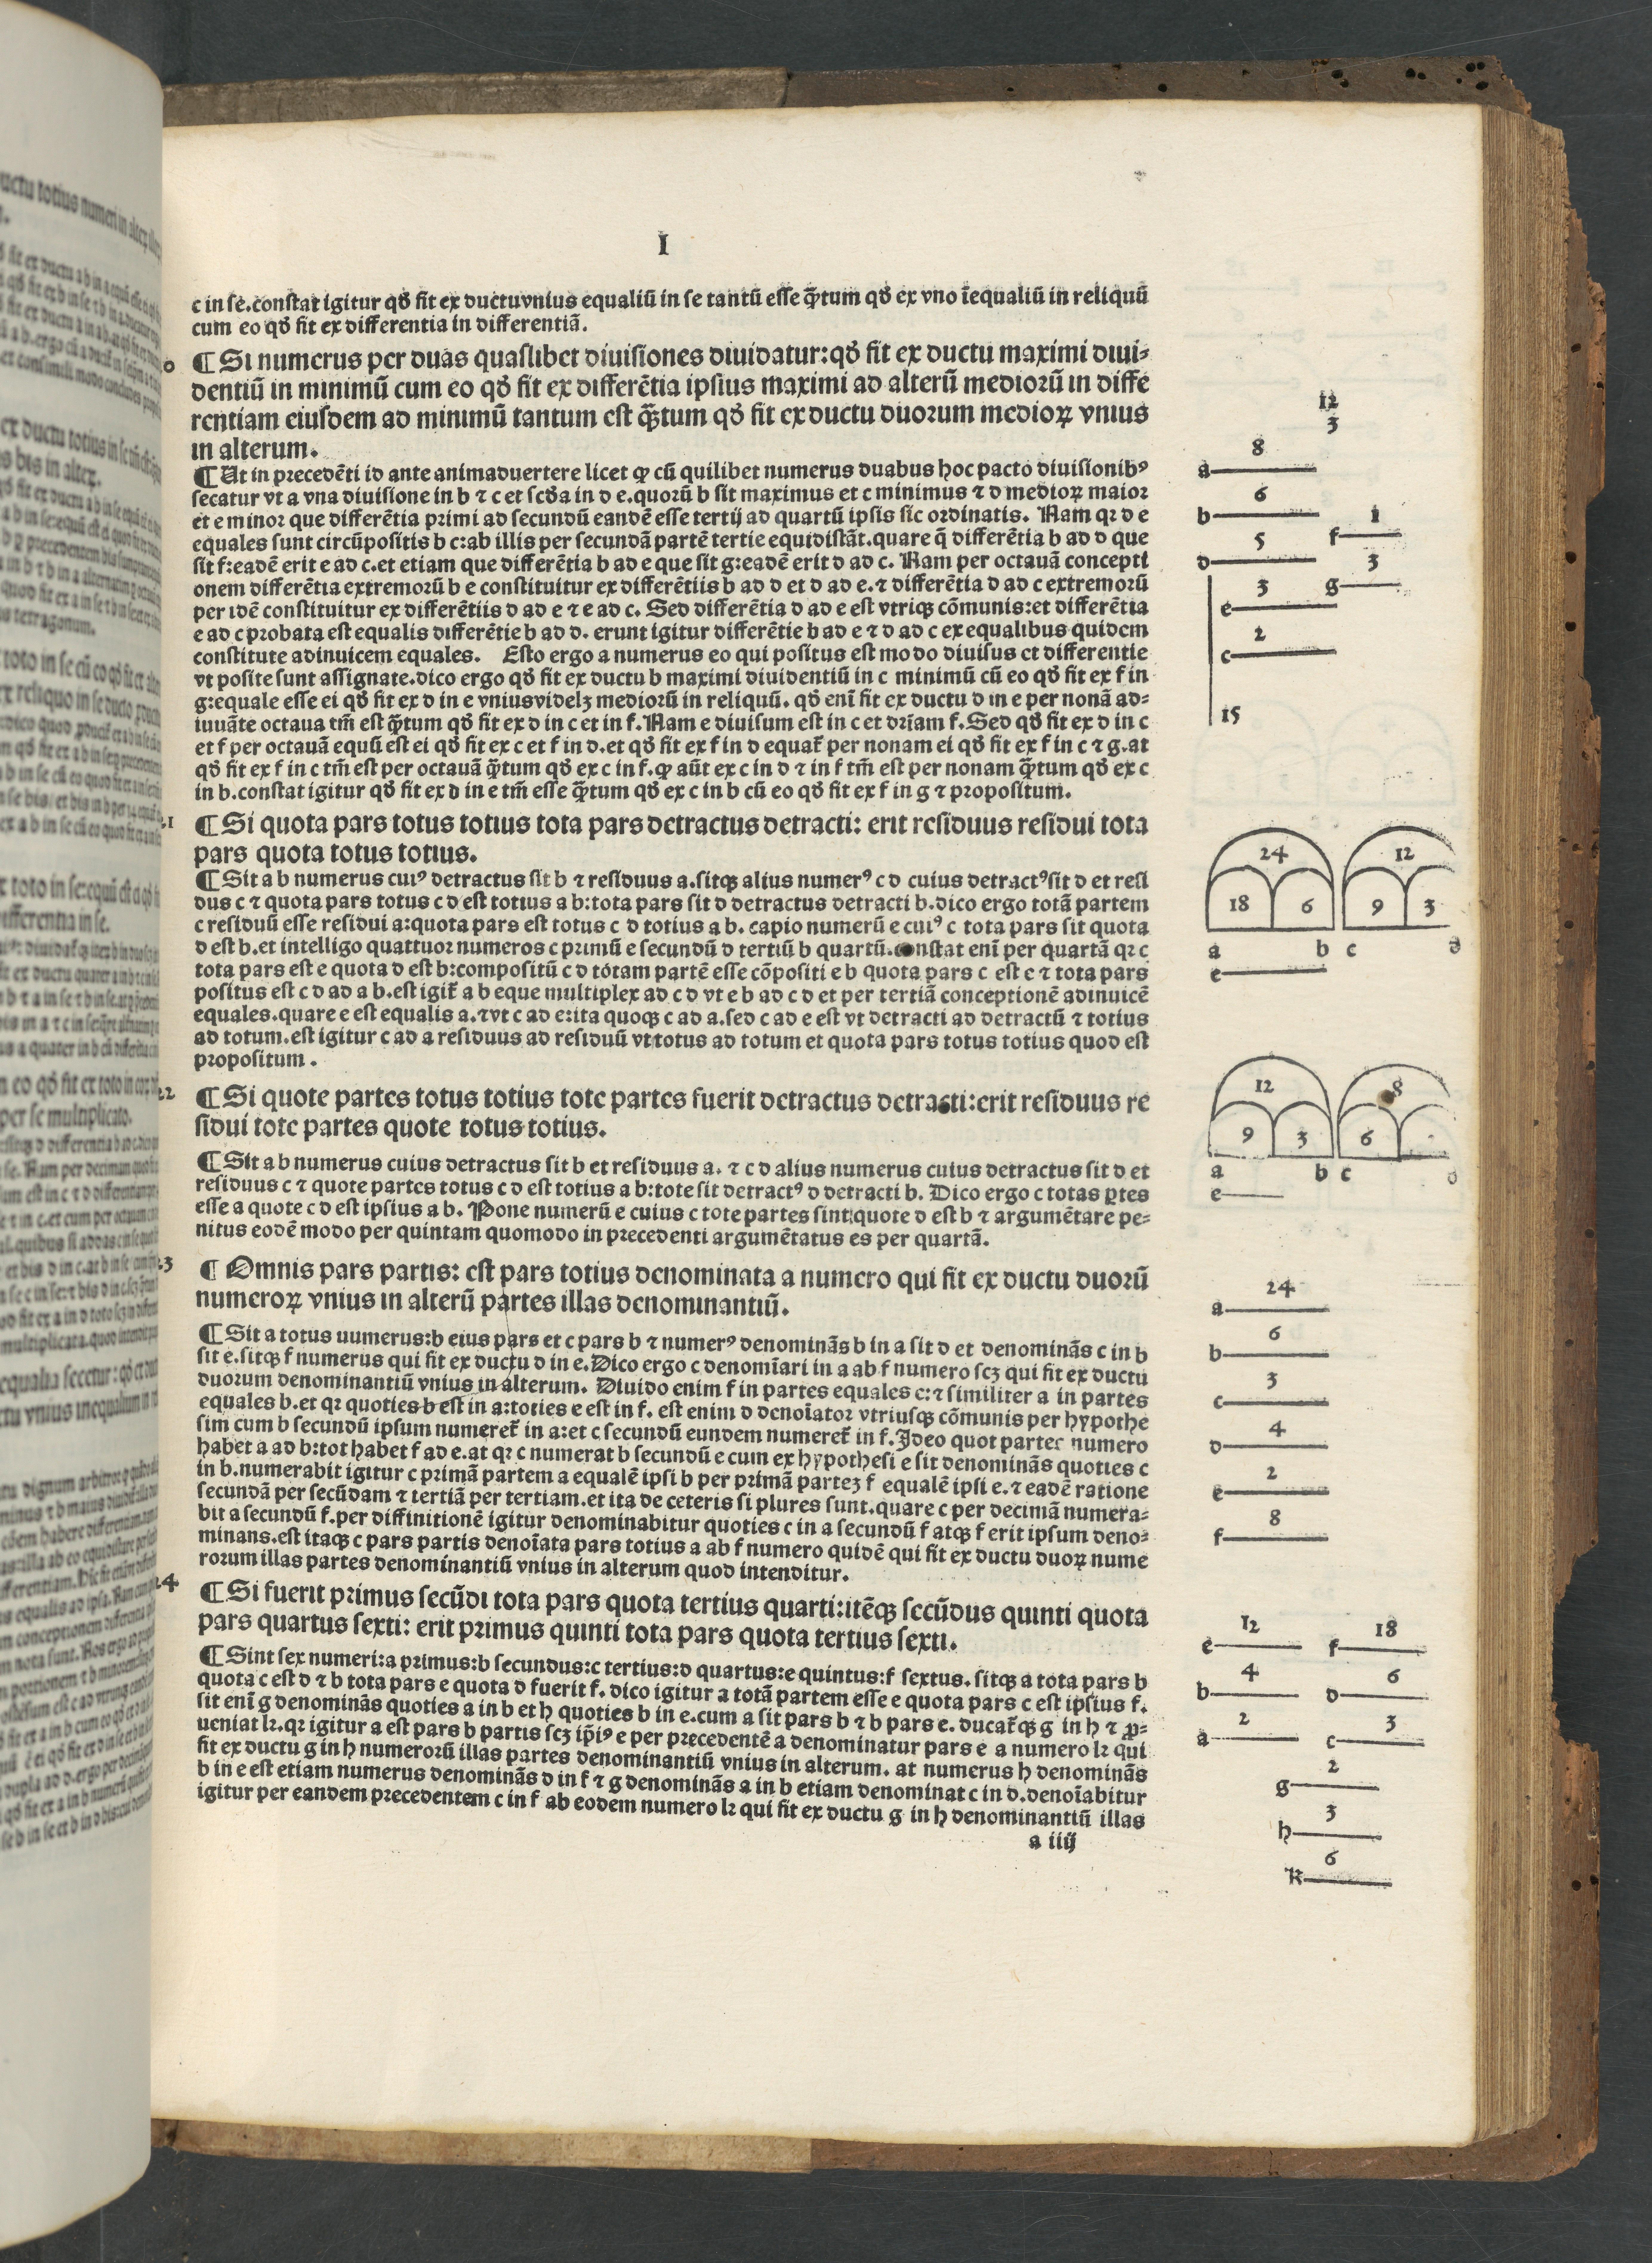 I
c in se.constat igitur qđ fit ex ductuvnius equaliũ in se tantũ esse q̃tum qđ ex vno iẽqualiũ in reliquũ
cum eo qđ fit ex differentia in differentiã.
¶ Si numerus per duas quaslibet diuisiones diuidatur:qđ fit ex ductu maximi diui⸗
dentiũ in minimũ cum eo qđ fit ex differẽtia ipsius maximi ad alterũ mediorũ in diffe
rentiam eiusdem ad minimũ tantum est q̃tum qđ fit ex ductu duorum medioꝝ vnius
in alterum.
¶ Ut in precedẽti id ante animaduertere licet ꝙ cũ quilibet numerus duabus hoc pacto diuisionibꝰ
secatur vt a vna diuisione in b ⁊ c et scđa in d e.quorũ b sit maximus et c minimus ⁊ d medioꝝ maior
et e minor que differẽtia primi ad secundũ eandẽ esse tertij ad quartũ ipsis sic ordinatis. Nam qr d e
equales sunt circũpositis b c:ab illis per secundã partẽ tertie equidistãt.quare q̃ differẽtia b ad d que
sit f:eadẽ erit e ad c.et etiam que differẽtia b ad e que sit g:eadẽ erit d ad c. Nam per octauã concepti
onem differẽtia extremorũ b e constituitur ex differẽtiis b ad d et d ad e.⁊ differẽtia d ad c extremorũ
per idẽ constituitur ex differẽtiis d ad e ⁊ e ad c. Sed differẽtia d ad e est vtriqꝫ cõmunis:et differẽtia
e ad c probata est equalis differẽtie b ad d. erunt igitur differẽtie b ad e ⁊ d ad c ex equalibus quidem
constitute adinuicem equales. Esto ergo a numerus eo qui positus est modo diuisus et differentie
vt posite sunt assignate.dico ergo qđ fit ex ductu b maximi diuidentiũ in c minimũ cũ eo qđ fit ex f in
g:equale esse ei qđ fit ex d in e vniusvidelꝫ mediorũ in reliquũ. qđ eni͂ fit ex ductu d in e per nonã ad⸗
iuuãte octaua tm̃ est q̃tum qđ fit ex d in c et in f. Nam e diuisum est in c et dr̃iam f. Sed qđ fit ex d in c
et f per octauã equũ est ei qđ fit ex c et f in d.et qđ fit ex f in d equat̃ per nonam ei qđ fit ex f in c ⁊ g.at
qđ fit ex f in c tm̃ est per octauã q̃tum qđ ex c in f.ꝙ aũt ex c in d ⁊ in f tm̃ est per nonam q̃tum qđ ex c
in b.constat igitur qđ fit ex d in e tm̃ esse q̃tum qđ ex c in b cũ eo qđ fit ex f in g ⁊ propositum.
¶ Si quota pars totus totius tota pars detractus detracti: erit residuus residui tota
pars quota totus totius.
¶ Sit a b numerus cuiꝰ detractus sit b ⁊ residuus a.sitqꝫ alius numerꝰ c d cuius detractꝰ sit d et resi
dus c ⁊ quota pars totus c d est totius a b:tota pars sit d detractus detracti b.dico ergo totã partem
c residuũ esse residui a:quota pars est totus c d totius a b. capio numerũ e cuiꝰ c tota pars sit quota
d est b.et intelligo quattuor numeros c primũ e secundũ d tertiũ b quartũ. constat eni͂ per quartã qr c
tota pars est e quota d est b:compositũ c d totam partẽ esse cõpositi e b quota pars c est e ⁊ tota pars
positus est c d ad a b.est igit̃ a b eque multiplex ad c d vt e b ad c d et per tertiã conceptionẽ adinuicẽ
equales.quare e est equalis a.⁊vt c ad e:ita quoqꝫ c ad a.sed c ad e est vt detracti ad detractũ ⁊ totius
ad totum.est igitur c ad a residuus ad residuũ vt totus ad totum et quota pars totus totius quod est
propositum.
22
¶ Si quote partes totus totius tote partes fuerit detractus detracti:erit residuus re
sidui tote partes quote totus totius.
¶ Sit a b numerus cuius detractus sit b et residuus a. ⁊ c d alius numerus cuius detractus sit d et
residuus c ⁊ quote partes totus c d est totius a b:tote sit detractꝰ d detracti b. Dico ergo c totas ꝑtes
esse a quote c d est ipsius a b. Pone numerũ e cuius c tote partes sint:quote d est b ⁊ argumẽtare pe⸗
nitus eodẽ modo per quintam quomodo in precedenti argumẽtatus es per quartã.
23
¶ Omnis pars partis: est pars totius denominata a numero qui fit ex ductu duorũ
numeroꝝ vnius in alterũ partes illas denominantiũ.
¶ Sit a totus uumerus:b eius pars et c pars b ⁊ numerꝰ denominãs b in a sit d et denominãs c in b
sit e.sitqꝫ f numerus qui fit ex ductu d in e.Dico ergo c denomĩari in a ab f numero scꝫ qui fit ex ductu
duorum denominantiũ vnius in alterum. Diuido enim f in partes equales e:⁊ similiter a in partes
equales b.et qr quoties b est in a:toties e est in f. est enim d denoĩator vtriusqꝫ cõmunis per hypothe
sim cum b secundũ ipsum numeret̃ in a:et c secundũ eundem numeret̃ in f.Ideo quot partec numero
habet a ad b:tot habet f ad e.at qr c numerat b secundũ e cum ex hypothesi e sit denominãs quoties c
in b.numerabit igitur c primã partem a equalẽ ipsi b per primã parteꝫ f equalẽ ipsi e.⁊ eadẽ ratione
secundã per secũdam ⁊ tertiã per tertiam.et ita de ceteris si plures sunt.quare c per decimã numera⸗
bit a secundũ f.per diffinitionẽ igitur denominabitur quoties c in a secundũ f atqꝫ f erit ipsum deno⸗
minans.est itaqꝫ c pars partis denoĩata pars totius a ab f numero quidẽ qui fit ex ductu duoꝝ nume
rorum illas partes denominantiũ vnius in alterum quod intenditur.
24
¶ Si fuerit primus secũdi tota pars quota tertius quarti:itẽqꝫ secũdus quinti quota
pars quartus sexti: erit primus quinti tota pars quota tertius sexti.
¶ Sint sex numeri:a primus:b secundus:c tertius:d quartus:e quintus:f sextus. sitqꝫ a tota pars b
quota c est d ⁊ b tota pars e quota d fuerit f. dico igitur a totã partem esse e quota pars c est ipsius f.
sit eni͂ g denominãs quoties a in b et h quoties b in e.cum a sit pars b ⁊ b pars e. ducat̃qꝫ g in h ⁊ ꝓ⸗
ueniat k. qr igitur a est pars b partis scꝫ ip̃iꝰ e per precedentẽ a denominatur pars e a numero k qui
fit ex ductu g in h numerorũ illas partes denominantiũ vnius in alterum. at numerus h denominãs
b in e est etiam numerus denominãs d in f ⁊ g denominãs a in b etiam denominat c in d.denoĩabitur
igitur per eandem precedentem c in f ab eodem numero k qui fit ex ductu g in h denominantiũ illas
a iiij
12
3
8
a
6
b
1
f
5
d
3
g
3
e
2
c
15
24 12
18 6 9 3
a b c d
e
12 8
9 3 6
a b c d
e
24
a
6
b
3
c
4
d
2
e
8
f
12 18
e f
4 6
b d
2 3
a c
2
g
3
h
6
k